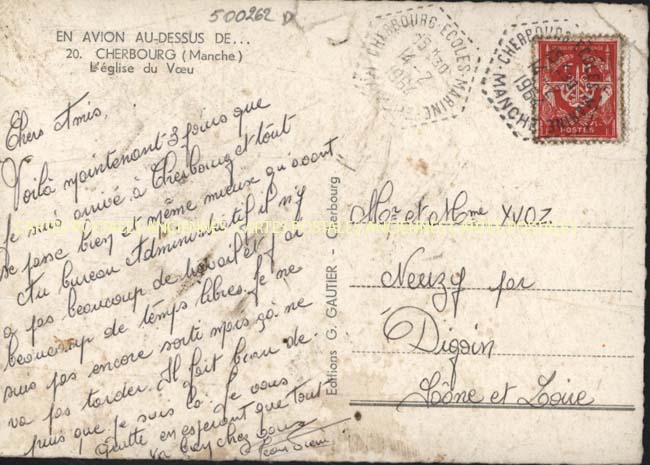 500262
EN AVION AU-DESSUS DE...
20. CHERBOURG (Manche)
L'église du Vœu
CHERBOURG-ECOLES-MARINE
MANCHE
1964
POSTES
Chers Amis,
Voilà maintenant 3 jours que
je suis arrivé à Cherbourg et tout
se passe bien et même mieux qu'avant
Au bureau Administratif il n'y
a pas beaucoup de travail et j'ai
beaucoup de temps libre. Je ne
suis pas encore sorti mais ça ne
va pas tarder. Il fait beau de-
puis que je suis là. Je vous
quitte en espérant que tout
va bien chez vous
Editions G. GAUTIER - Cherbourg
Mr et Mme YVOZ
Neuzy par
Digoin
Saône et Loire